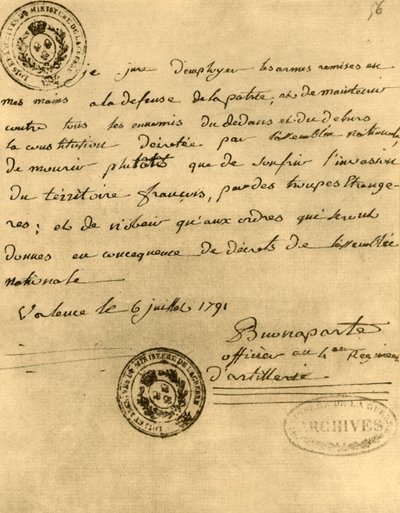 56
je jure d'employer les armes remises en
mes mains a la defense de la patrie, et de maintenir
contre tous les ennemis du dedans et du dehors
la constitution décrétée par l'assemblée nationale,
de mourir plutot que de soufrir l'invasion
du térritoire français, par des troupes étrange-
res; et de n'obeir qu'aux ordres qui seront
donnés en concequence de décrets de l'assemblée
nationale.
Valence le 6 juillet 1791
Buonaparte
officier au 4eme Regiment
d'artillerie
ARCHIVES